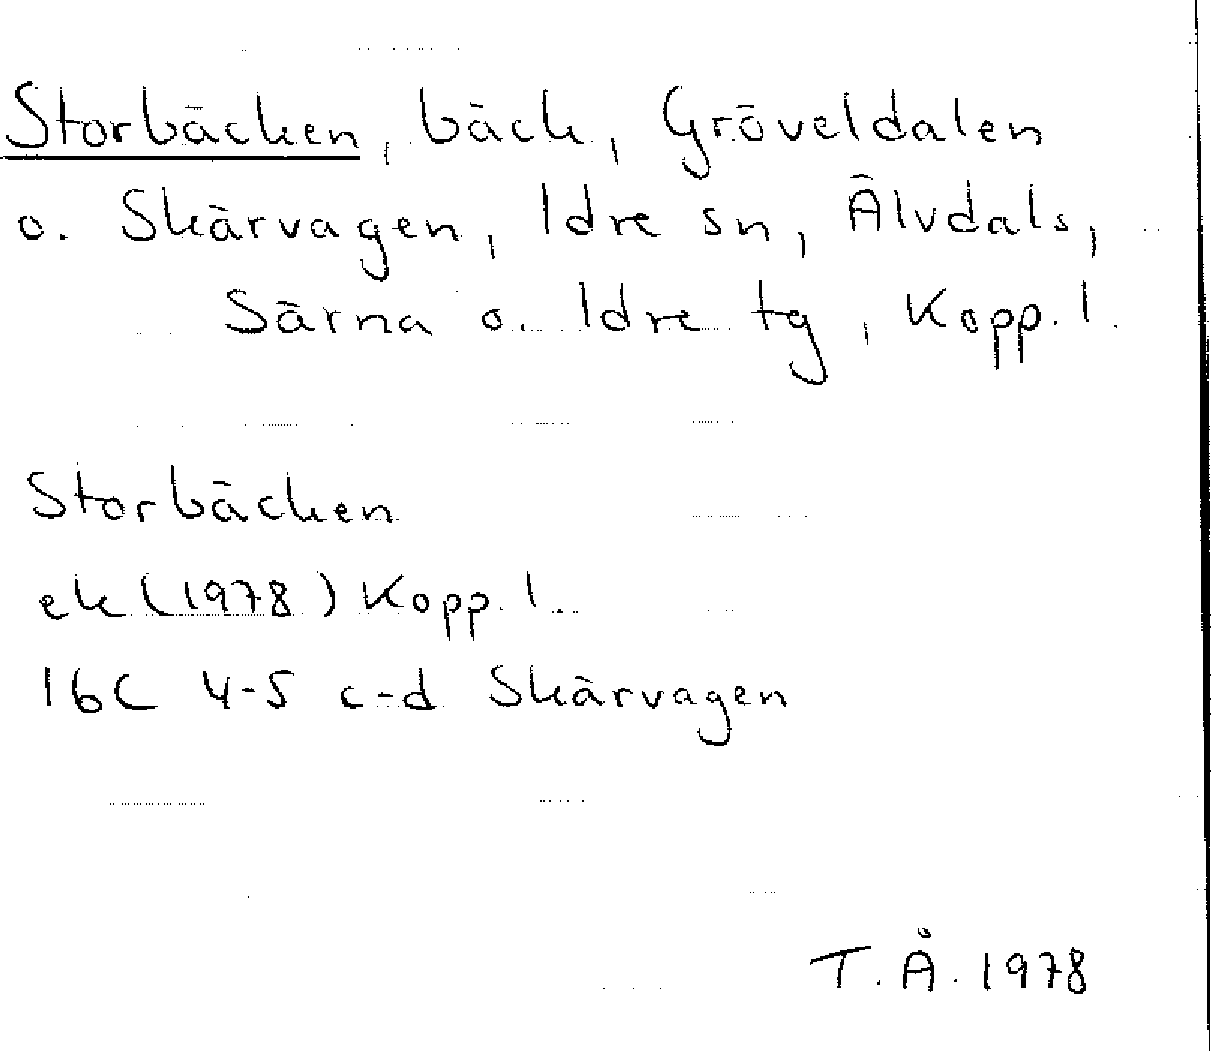 Storbäcken, bäck, Gröveldalen
o. Skärvagen, Idre sn, Älvdals,
Särna o. Idre tg, Kopp. l.
Storbäcken
ek (1978) Kopp. l.
16C 4-5 c-d Skärvagen
T.Å. 1978